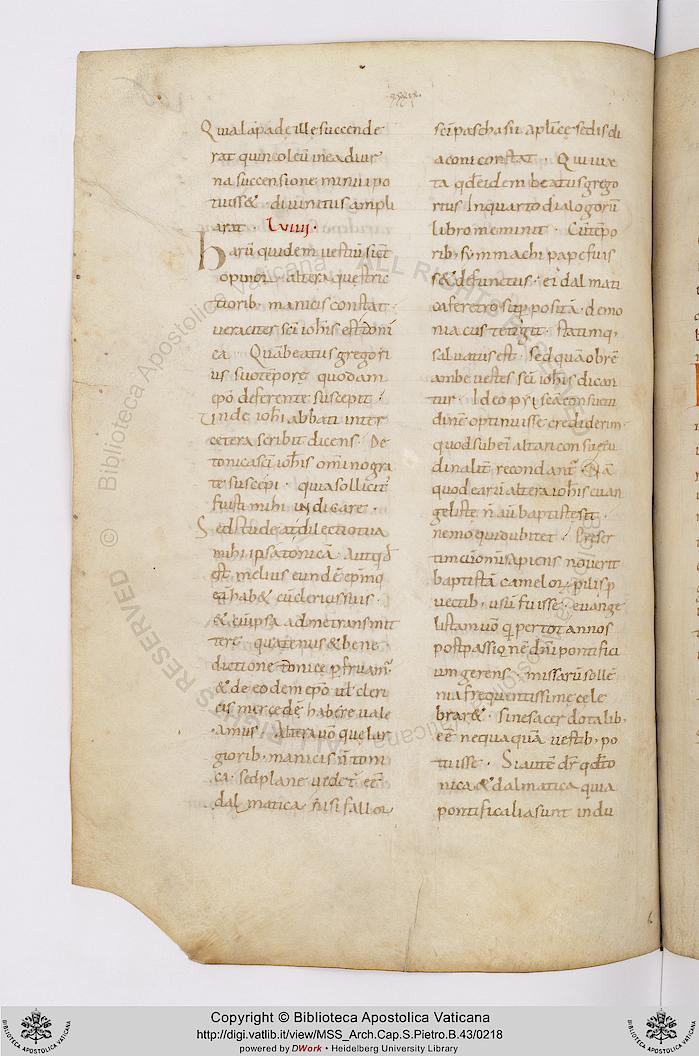 Quia lāpadē ille succende
rat quin oleū in ea diui
na succensione minui po
tuiss& · diuinitus ampli
arat · Lviiij ·
harū quidem uestiū sic̄
opinor · altera que stric
tiorib· manicis constat ·
ueraciter sc̄i ioh̄is est toni
ca · Quā beatus gregori
us suo tēpore quodam
ep̄o deferente suscepit ·
Unde ioh̄i abbati inter
cetera scribit dicens · De
tonica sc̄i ioh̄is om̄ino gra
te suscepi · quia sollicit̄
fuisti mihi indicare ·
Sed studeat dilectio tua
mihi ipsā tonicā · aut qd̄
est melius eundē ep̄m q
eā hab& cū clericis suis ·
& cū ipsa ad me transmit
tere · quatenus & bene
dictione tonice p̄fruam̄ ·
& de eodem ep̄o ul̄ cleri
cis mercedē habere uale
amus · Altera uō que lar
giorib· manicis n̄ toni
ca · sed plane uidet̄ eē
dalmatica · nisi fallor
sc̄i paschasii apl̄ice sedis di
aconi constat · Qui iux
ta qd̄ eidem beatus grego
rius In quarto dialogorū
libro meminit · Cū tēpo
rib· symmachi pape fuis
s& defunctus · ei dalmati
cā feretro suppositā · demo
niacus tetigit · statimq,
saluatus est · sed quā obrē
ambe uestes sc̄i ioh̄is dican
tur · Ideo prisca consuetu
dinē optinuisse crediderim ·
quod sub ei altari consuetu
dinalit̄ recondant̄ · Nā
quod earū altera ioh̄is euan
geliste n̄ aū baptiste sit
nemo qui dubitet · Preser
tim cū om̄is sapiens nouerit
baptistā camelor̄ pilis p̄
uectib· usū fuisse · euange
listam uō q̄ per tot annos
post passionē dn̄i pontifici
um gerens · missarū sollē
nia frequentissime cele
brar& · sine sacerdotalib·
eē nequaquā uestib· po
tuisse · Si autē dr̄ qd̄ to
nica & dalmatica quia
pontificalia sunt indu
Copyright © Biblioteca Apostolica Vaticana
http://digi.vatlib.it/view/MSS_Arch.Cap.S.Pietro.B.43/0218
powered by DWork • Heidelberg University Library